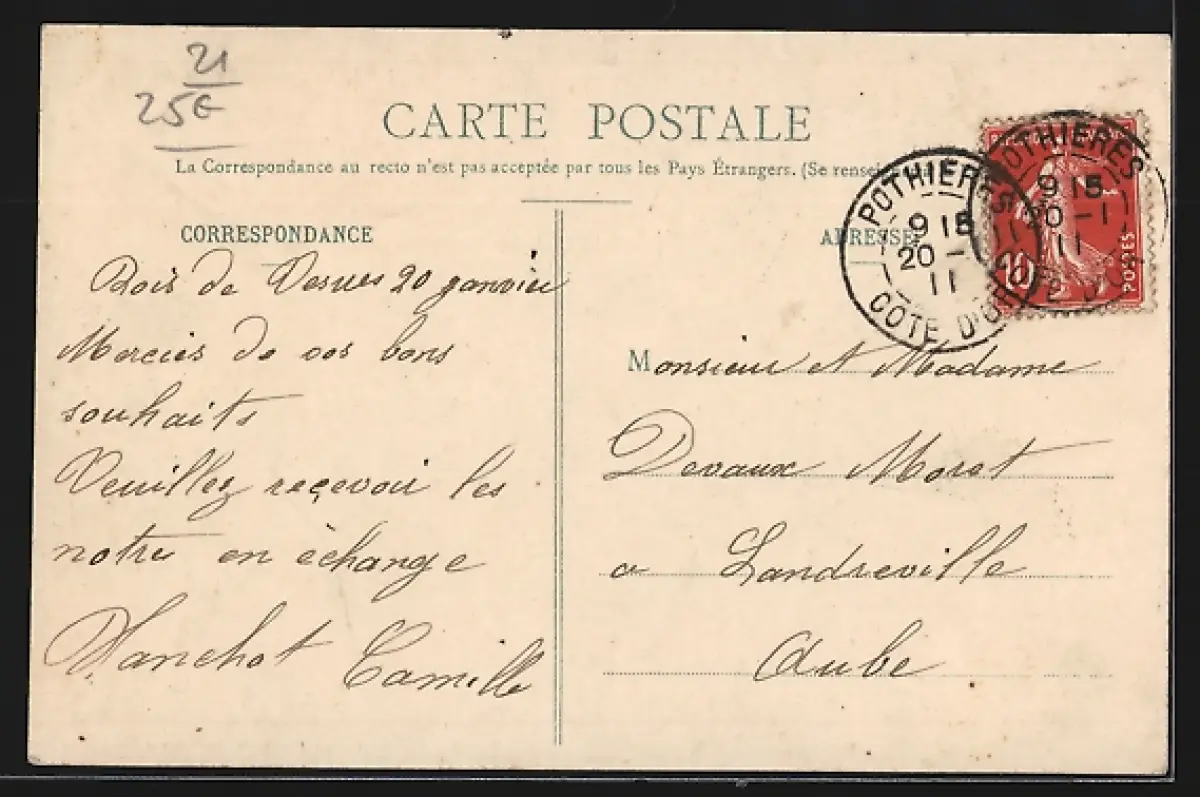 21
25€
CARTE POSTALE
La Correspondance au recto n'est pas acceptée par tous les Pays Étrangers. (Se rensei
CORRESPONDANCE
ADRESSE
POTHIERES
9 15
20 -
11
COTE D'OR
POTHIERES
9 15
20 -1
11
COTE D'OR
10
POSTES
Bois de 20 janvier
Mercies de vos bons
souhaits
Veuillez reçevoir les
notres en èchange
Camille
Monsieur et Madame
Devaux Moret
a Landreville
Aube